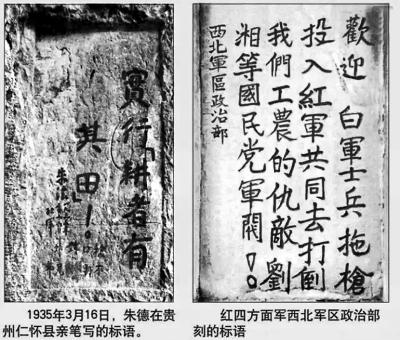 實行「耕者有
其田」！
朱德
歡迎 白軍士兵拖槍
投入紅軍共同去打倒
我們工農的仇敵劉
湘等國民党軍閥！
西北軍區政治部
1935年3月16日，朱德在贵
州仁怀县亲笔写的标语。
红四方面军西北军区政治部
刻的标语